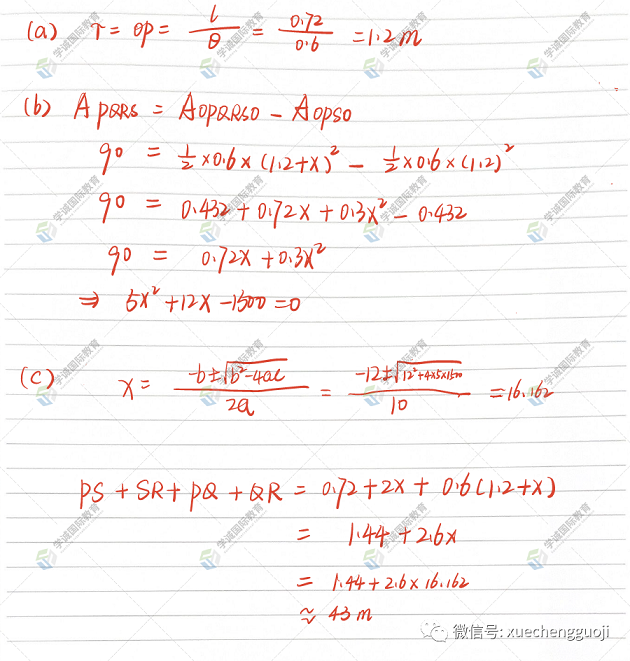 (a) r = OP = l/θ = 0.72/0.6 = 1.2 m
(b) APQRS = AOPQRSO - AOPSO
90 = 1/2 × 0.6 × (1.2+x)² - 1/2 × 0.6 × (1.2)²
90 = 0.432 + 0.72x + 0.3x² - 0.432
90 = 0.72x + 0.3x²
⇒ 5x² + 12x - 1500 = 0
(c) x = -b±√b²-4ac/2a = -12±√12²+4×5×1500/10 = 16.162
PS + SR + PQ + QR = 0.72 + 2x + 0.6(1.2+x)
= 1.44 + 2.6x
= 1.44 + 2.6 × 16.162
≈ 43 m
微信号: xuechengguoji
学诚国际教育